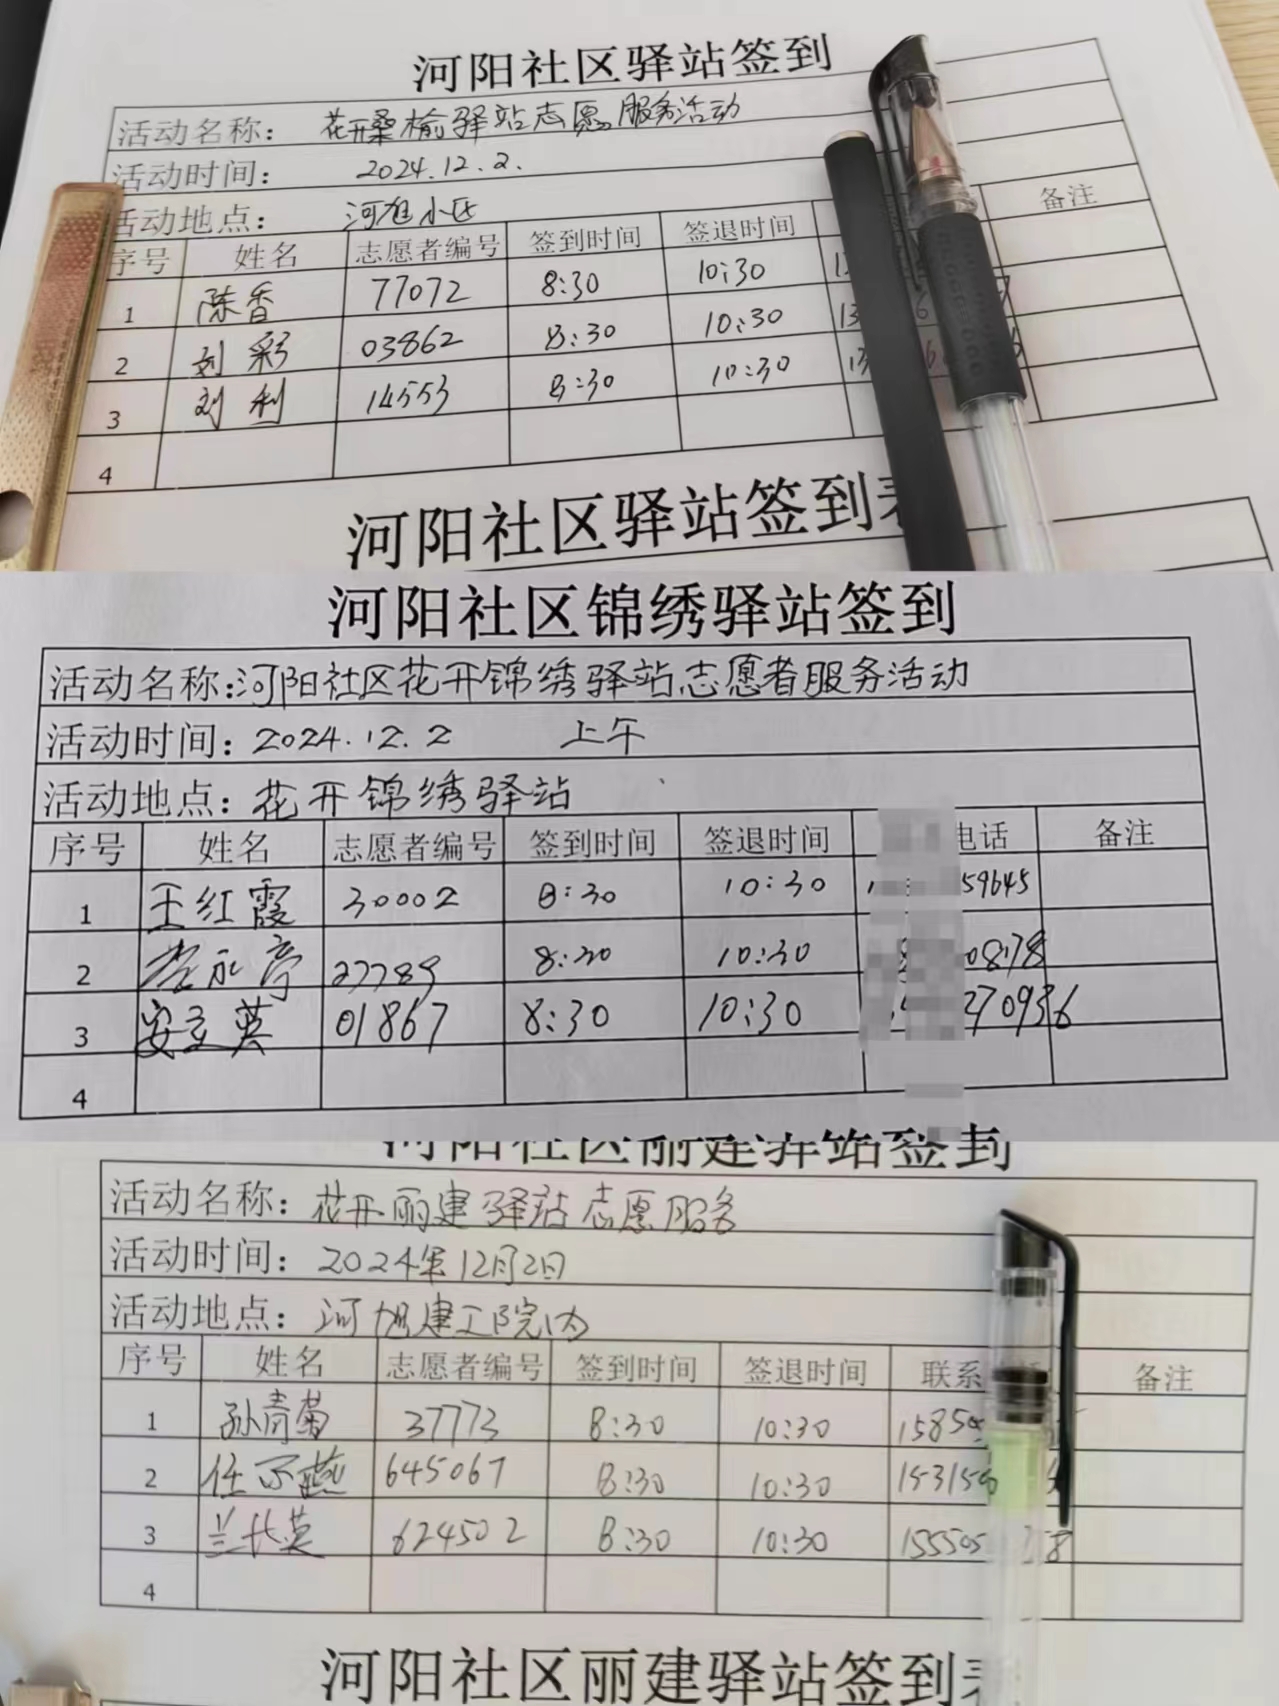 河阳社区驿站签到
活动名称： 花开桑榆驿站志愿服务活动
活动时间： 2024.12.2.
活动地点： 河旭小区
序号 姓名 志愿者编号 签到时间 签退时间 备注
1 陈香 77072 8:30 10:30
2 刘彩 03862 8:30 10:30 13
3 刘利 14553 8:30 10:30
4
河阳社区驿站签到表
河阳社区锦绣驿站签到
活动名称:河阳社区花开锦绣驿站志愿者服务活动
活动时间: 2024.12.2 上午
活动地点: 花开锦绣驿站
序号 姓名 志愿者编号 签到时间 签退时间 电话 备注
1 王红霞 30002 8:30 10:30 59645
2 永亭 27789 8:30 10:30 0878
3 安立英 01867 8:30 10:30 270936
4
河阳社区丽建驿站签到
活动名称: 花开丽建驿站志愿服务
活动时间: 2024年12月2日
活动地点: 河旭建工院内
序号 姓名 志愿者编号 签到时间 签退时间 联系 备注
1 孙青菊 37773 8:30 10:30 15850
2 任不燕 645067 8:30 10:30 153150
3 兰长英 624502 8:30 10:30 155505 8
4
河阳社区丽建驿站签到表